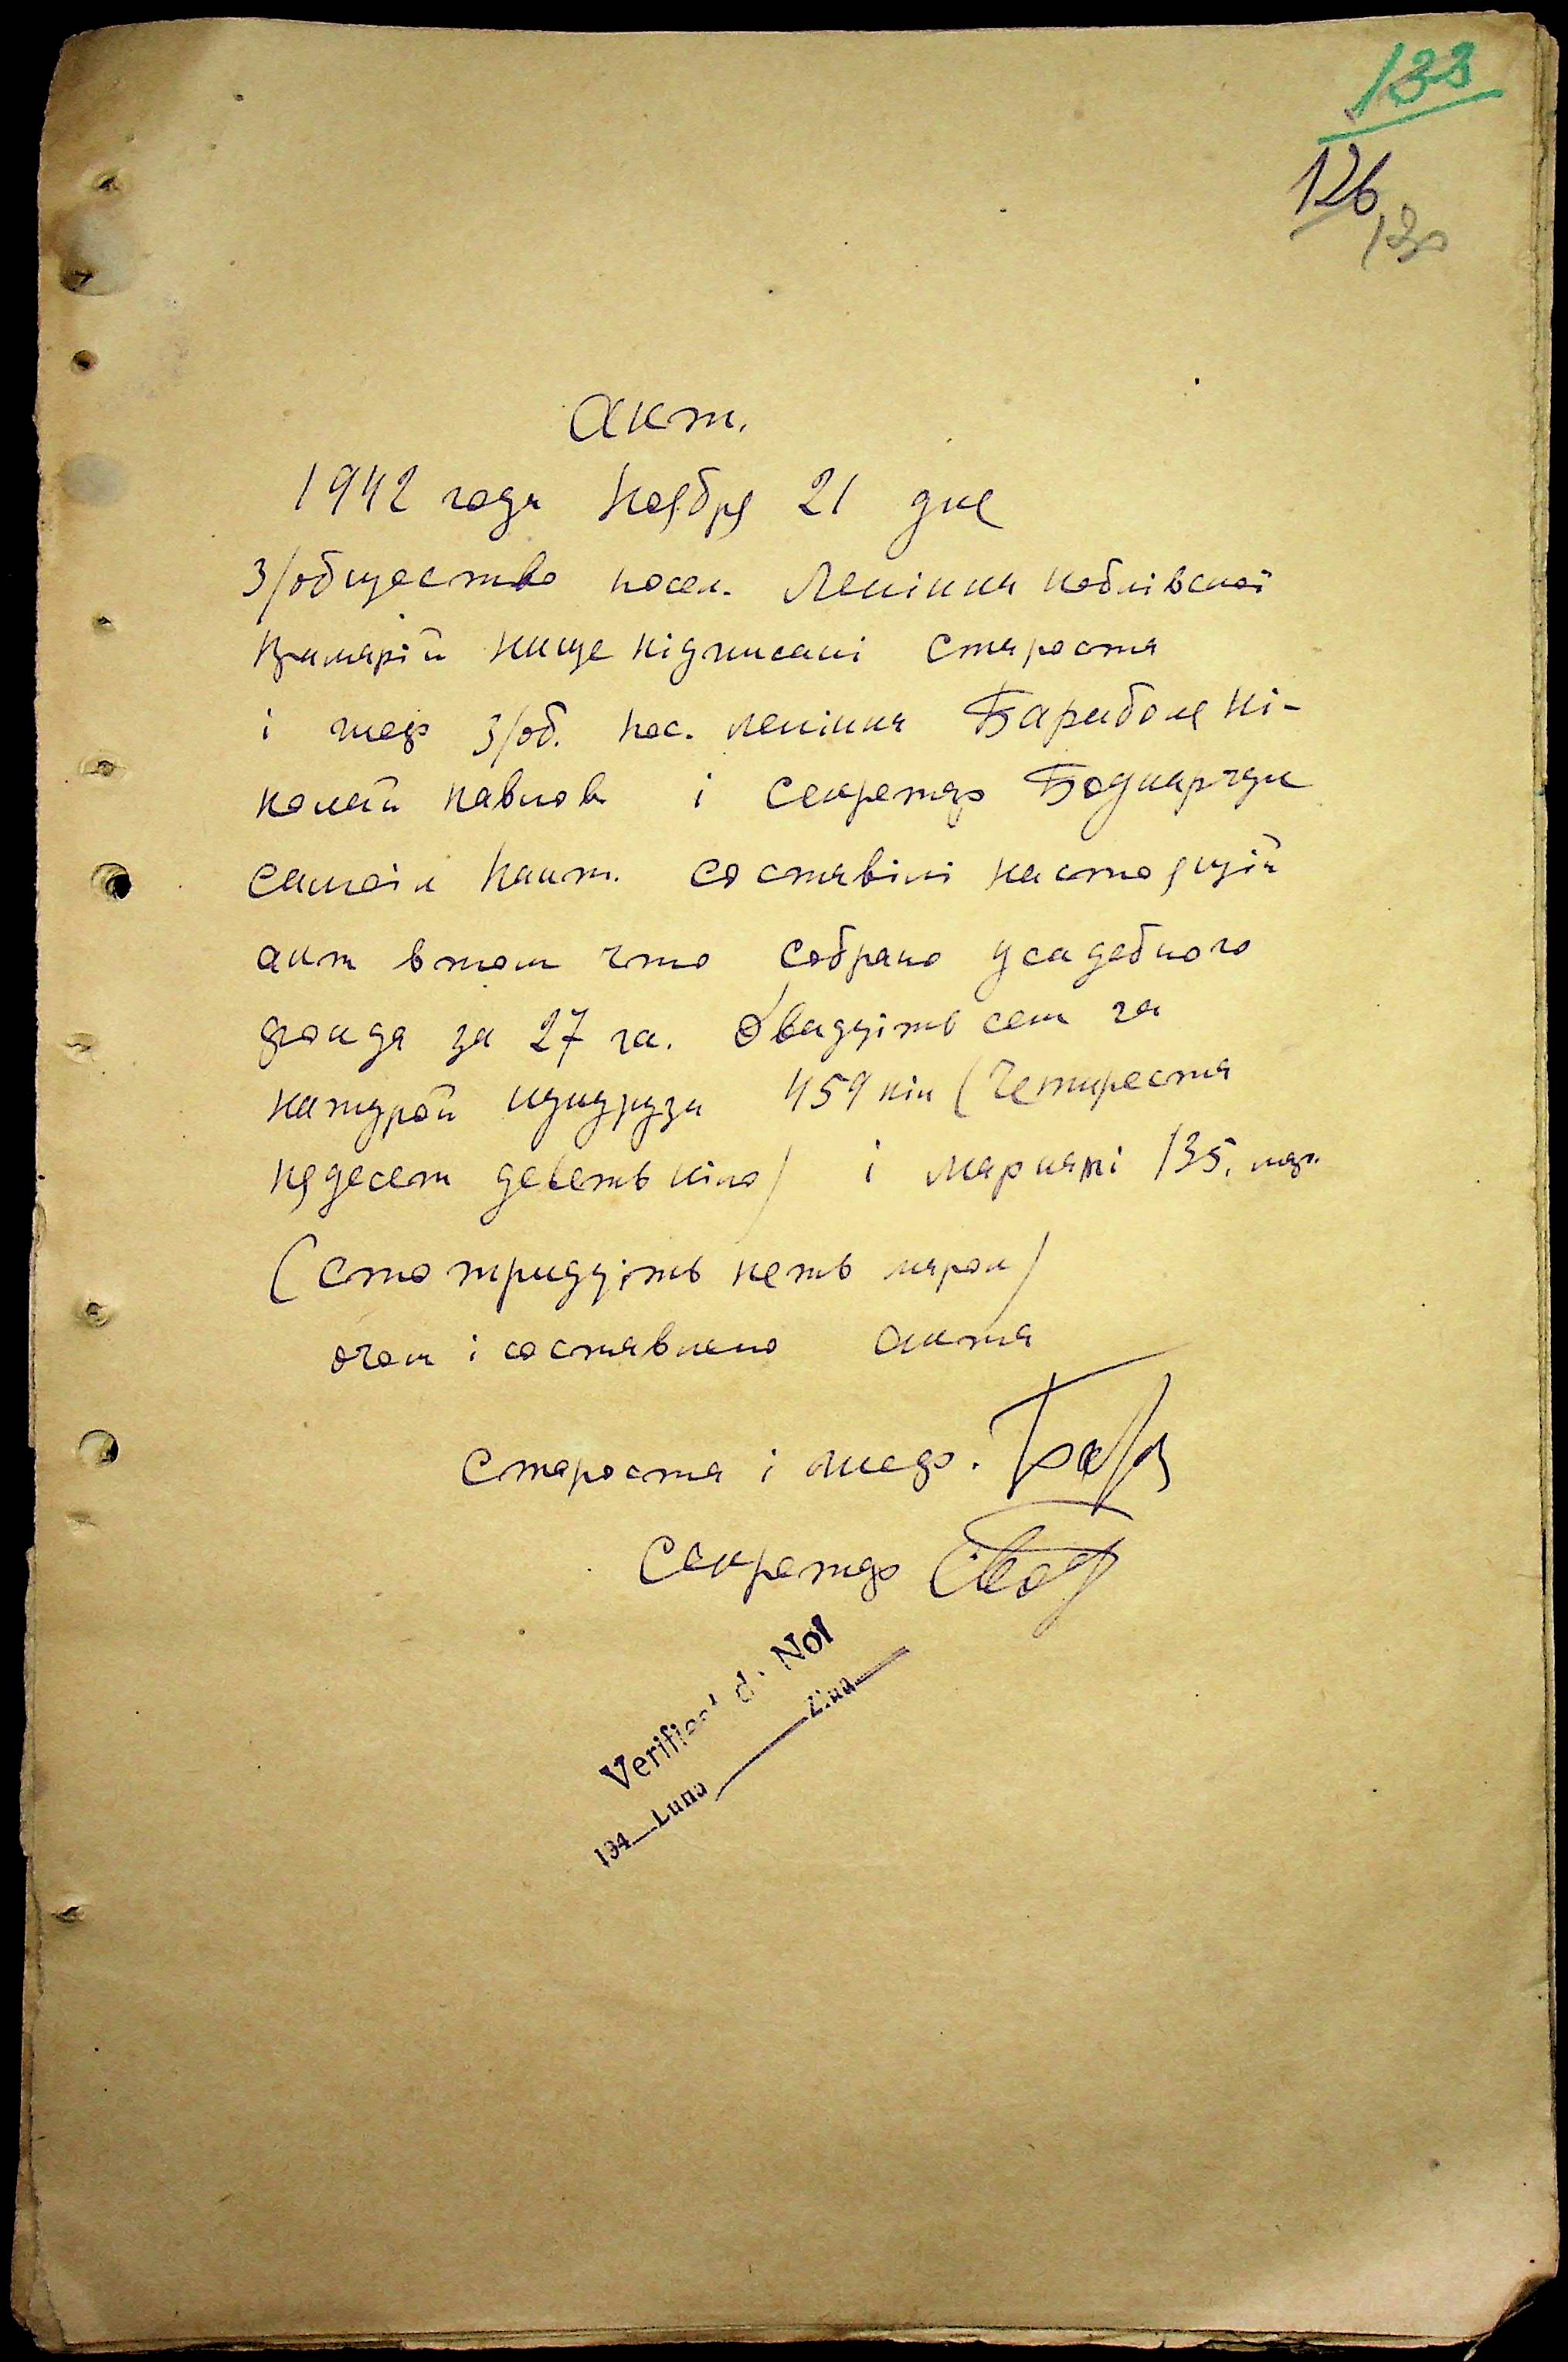 133
126
130
Акт.
1942 года Ноября 21 дне
З/общество посел. Ленінка Коблівской
Прімарій ніще підписані Староста
і шеф З/об. пос. Ленінка Бараболя Ні-
колай Павлов. і Секретар Боднарчук
Самоіл составілі настоящій
акт втом что Собрано усадебного
фонда за 27 га. Двадціть сем га
натурой кукурузи 459 кіл (Четиреста
пядесет деветь кіло) і маркамі 135. мар.
(Сто тридціть петь марок)
очом і составлено акта
Староста і шеф.
Секретар
Verificat d. Noi
194_ Luna ___ Ziua ___